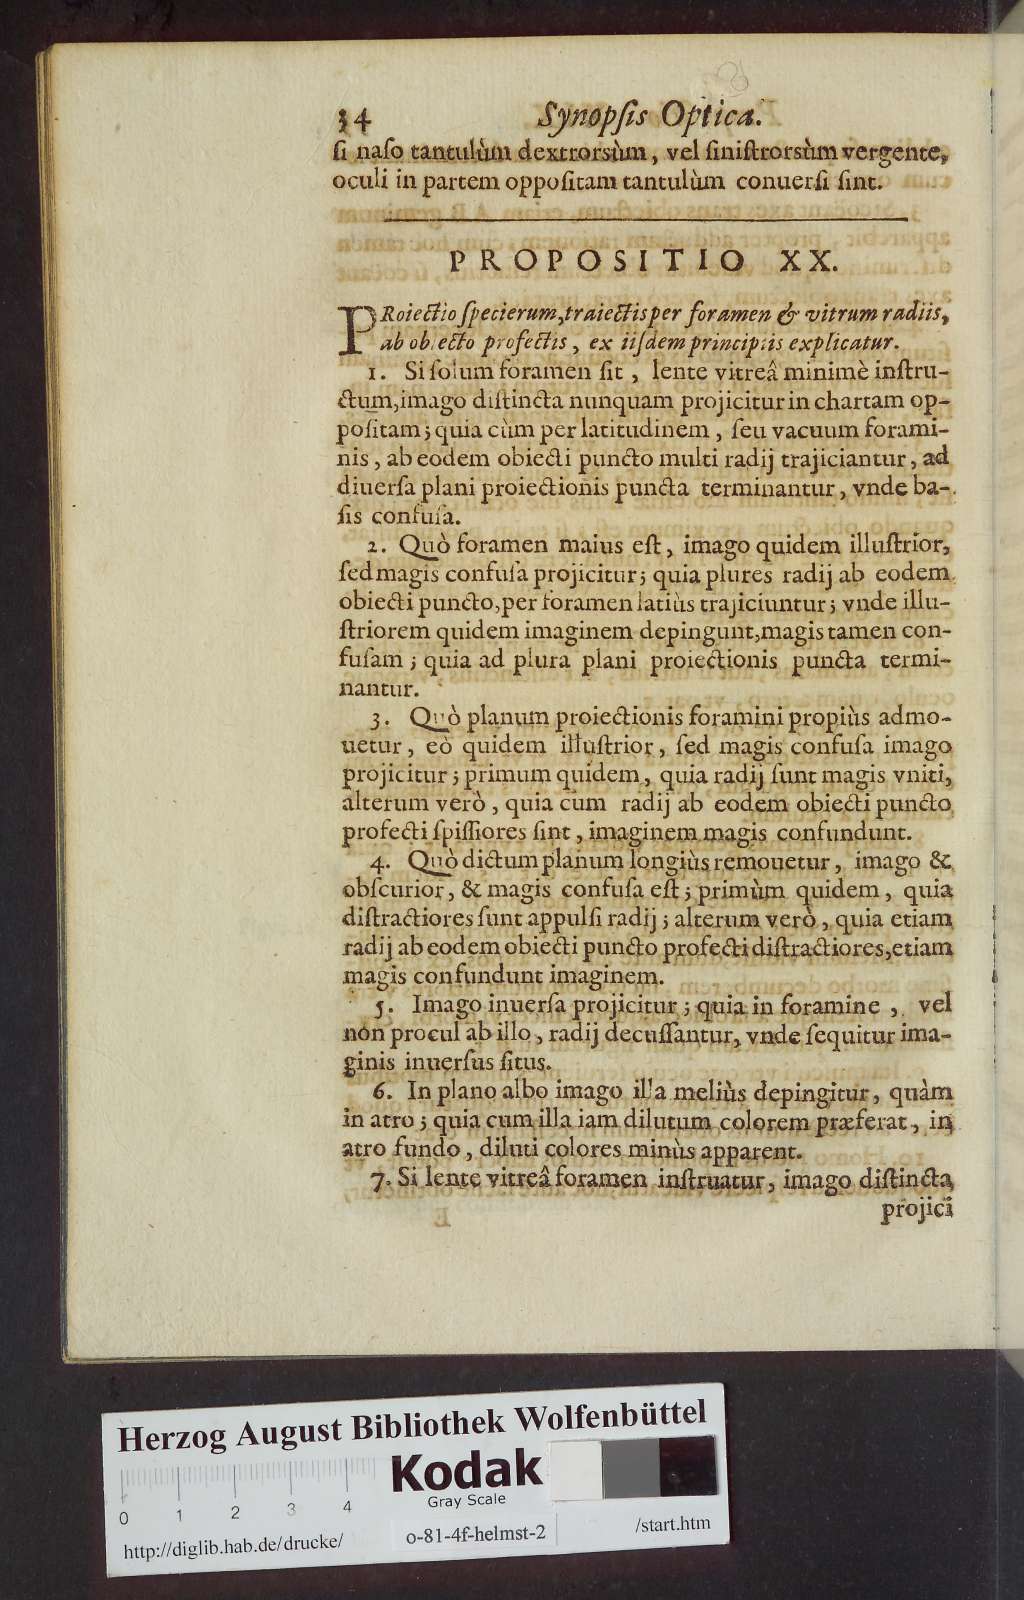 34 Synopsis Optica.
si naso tantulùm dextrorsùm, vel sinistrorsùm vergente,
oculi in partem oppositam tantulùm conuersi sint.
PROPOSITIO XX.
PRoiectio specierum, traiectis per foramen & vitrum radiis,
ab obiecto profectis, ex iisdem principiis explicatur.
1. Si solum foramen sit, lente vitreâ minimè instru-
ctum, imago distincta nunquam projicitur in chartam op-
positam; quia cùm per latitudinem, seu vacuum forami-
nis, ab eodem obiecti puncto multi radij trajiciantur, ad
diuersa plani proiectionis puncta terminantur, vnde ba-
sis confusa.
2. Quò foramen maius est, imago quidem illustrior,
sed magis confusa projicitur; quia plures radij ab eodem
obiecti puncto, per foramen latiùs trajiciuntur; vnde illu-
striorem quidem imaginem depingunt, magis tamen con-
fusam; quia ad plura plani proiectionis puncta termi-
nantur.
3. Quò planum proiectionis foramini propiùs admo-
uetur, eò quidem illustrior, sed magis confusa imago
projicitur; primum quidem, quia radij sunt magis vniti,
alterum verò, quia cum radij ab eodem obiecti puncto
profecti spissiores sint, imaginem magis confundunt.
4. Quò dictum planum longiùs remouetur, imago &
obscurior, & magis confusa est; primùm quidem, quia
distractiores sunt appulsi radij; alterum verò, quia etiam
radij ab eodem obiecti puncto profecti distractiores, etiam
magis confundunt imaginem.
5. Imago inuersa projicitur; quia in foramine, vel
non procul ab illo, radij decussantur, vnde sequitur ima-
ginis inuersus situs.
6. In plano albo imago illa meliùs depingitur, quàm
in atro; quia cum illa iam dilutum colorem præferat, in
atro fundo, diluti colores minùs apparent.
7. Si lente vitreâ foramen instruatur, imago distincta
projici
Herzog August Bibliothek Wolfenbüttel
Kodak
Gray Scale
0 1 2 3 4
http://diglib.hab.de/drucke/ o-81-4f-helmst-2 /start.htm